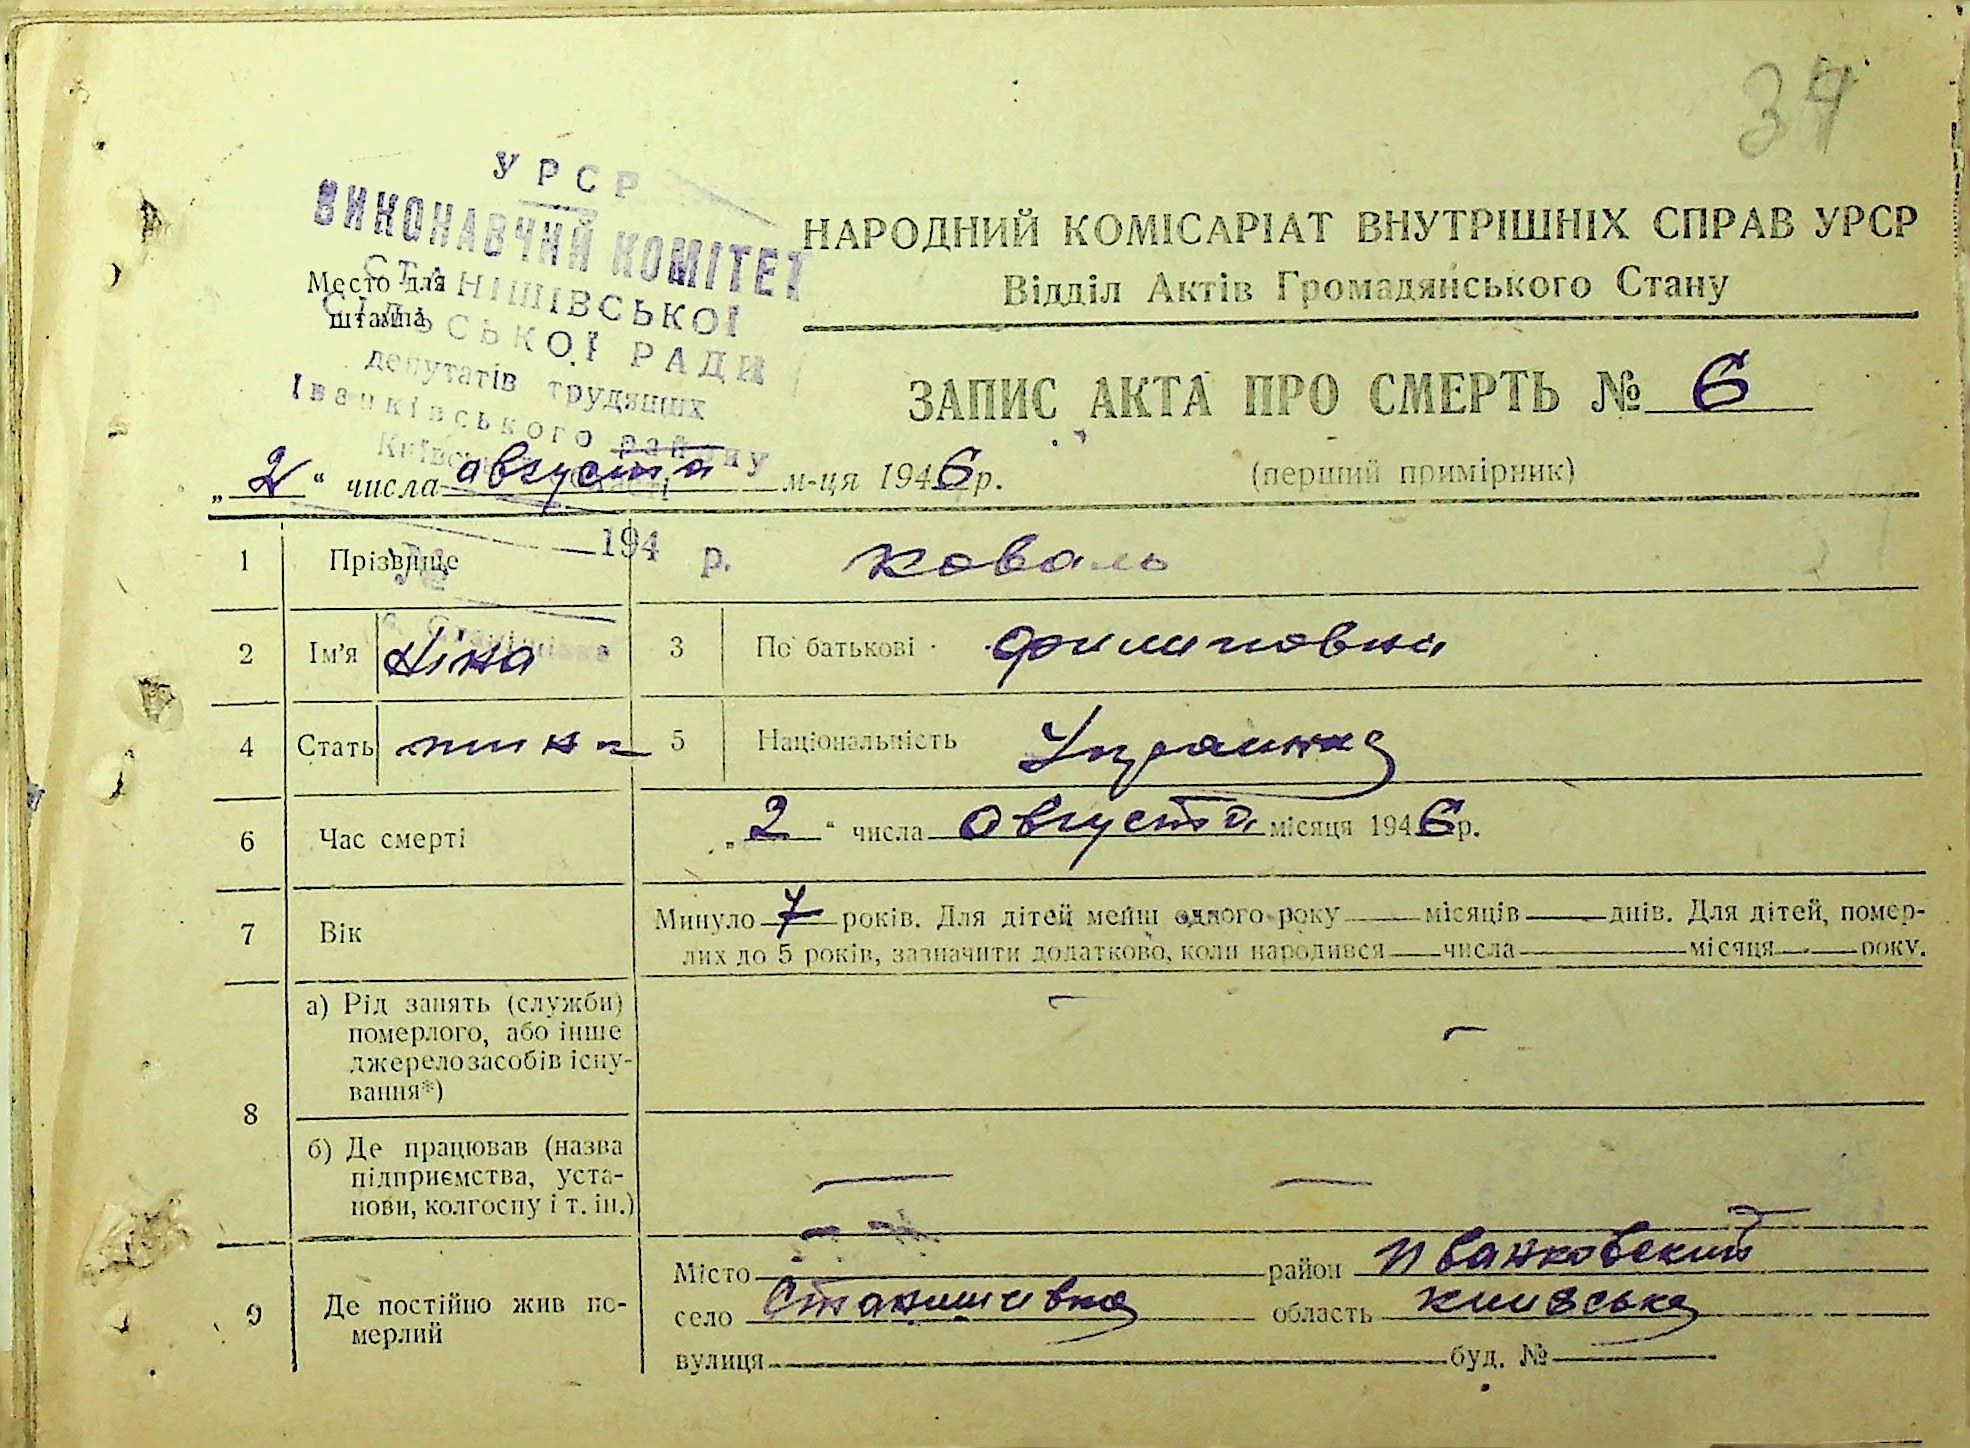 34
УРСР
ВИКОНАВЧИЙ КОМІТЕТ
СТАНІШІВСЬКОЇ
СІЛЬСЬКОЇ РАДИ
депутатів трудящих
Іванківського району
Київської області
194 р.
№
с. Станішівка
Место для
штампа
НАРОДНИЙ КОМІСАРІАТ ВНУТРІШНІХ СПРАВ УРСР
Відділ Актів Громадянського Стану
ЗАПИС АКТА ПРО СМЕРТЬ № 6
„2“ числа августа м-ця 1946 р.
(перший примірник)
1 Прізвище Коваль
2 Ім'я Ніна 3 По батькові Филиповна
4 Стать 5 Національність Украинка
6 Час смерті „2“ числа августа місяця 1946 р.
7 Вік Минуло 7 років. Для дітей менш одного року — місяців — днів. Для дітей, помер-
лих до 5 років, зазначити додатково, коли народився — числа — місяця — року.
8 а) Рід занять (служби)
померлого, або інше
джерело засобів існу-
вання*)
— —
б) Де працював (назва
підприємства, уста-
нови, колгоспу і т. ін.)
— —
9 Де постійно жив по-
мерлий
Місто район Иванковский
село Станишивка область Киівська
вулиця буд. №